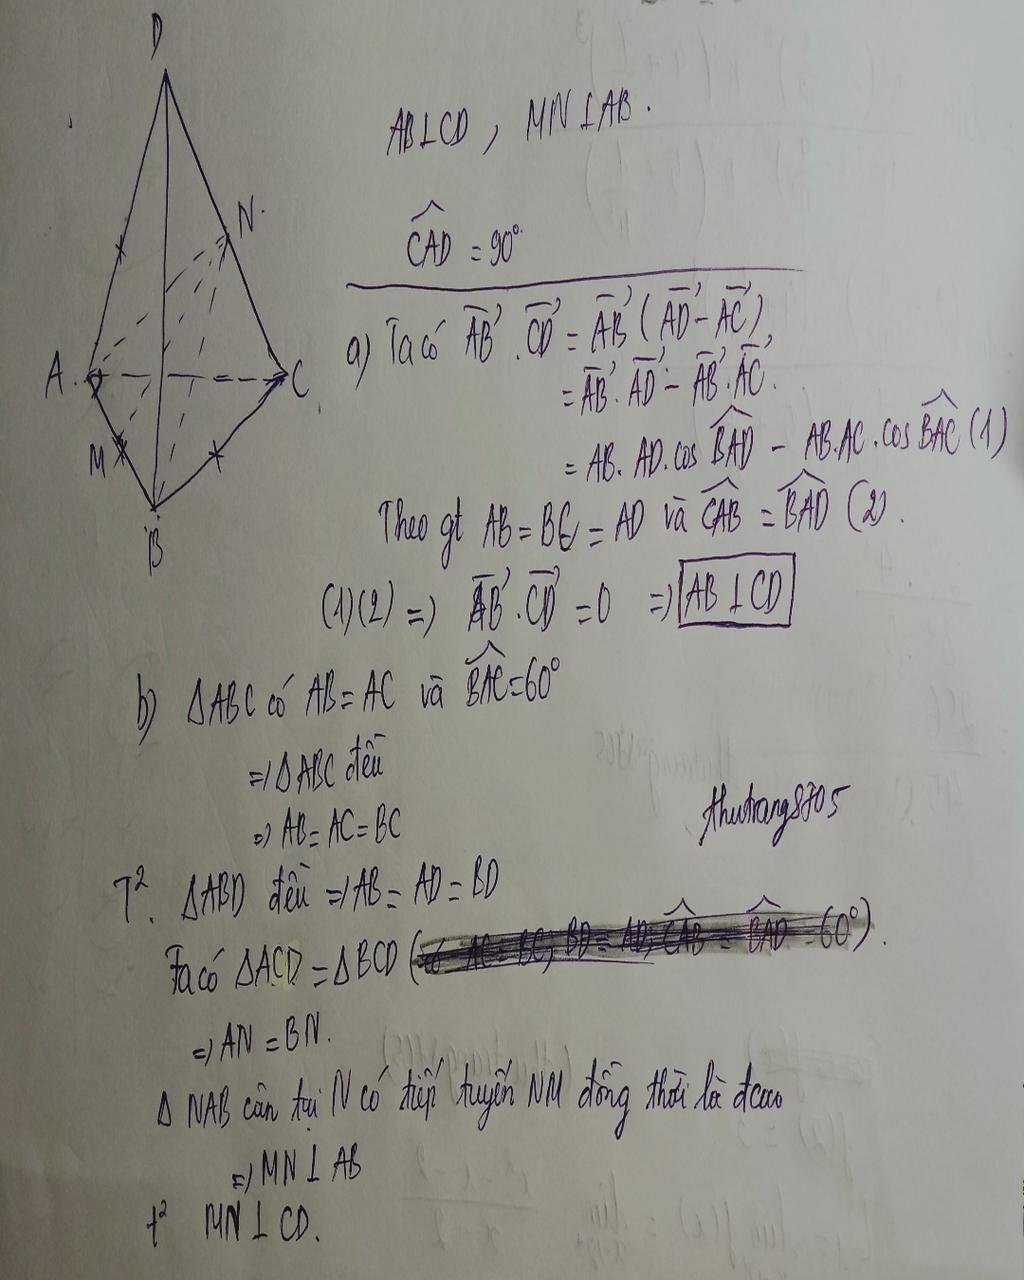 D
AB⊥CD, MN⊥AB.
N.
$\widehat{CAD}$ = 90°
A.
C
M
B
a) Ta có $\overrightarrow{AB}$.$\overrightarrow{CD}$ = $\overrightarrow{AB}$ ($\overrightarrow{AD}$ - $\overrightarrow{AC}$)
= $\overrightarrow{AB}$.$\overrightarrow{AD}$ - $\overrightarrow{AB}$.$\overrightarrow{AC}$.
= AB.AD.cos $\widehat{BAD}$ - AB.AC.cos $\widehat{BAC}$ (1)
Theo gt AB = BC = AD và $\widehat{CAB}$ = $\widehat{BAD}$ (2).
(1)(2) => $\overrightarrow{AB}$.$\overrightarrow{CD}$ = 0 => AB ⊥ CD
b) ΔABC có AB = AC và $\widehat{BAC}$ = 60°
=> ΔABC đều
=> AB = AC = BC
thutrang8705
T². ΔABD đều => AB = AD = BD
Ta có ΔACD = ΔBCD ( AC = BC, BD = AD, $\widehat{CAB}$ = $\widehat{BAD}$ = 60°).
=> AN = BN.
Δ NAB cân tại N có tiếp tuyến NM đồng thời là đcao
=> MN ⊥ AB
t² MN ⊥ CD.